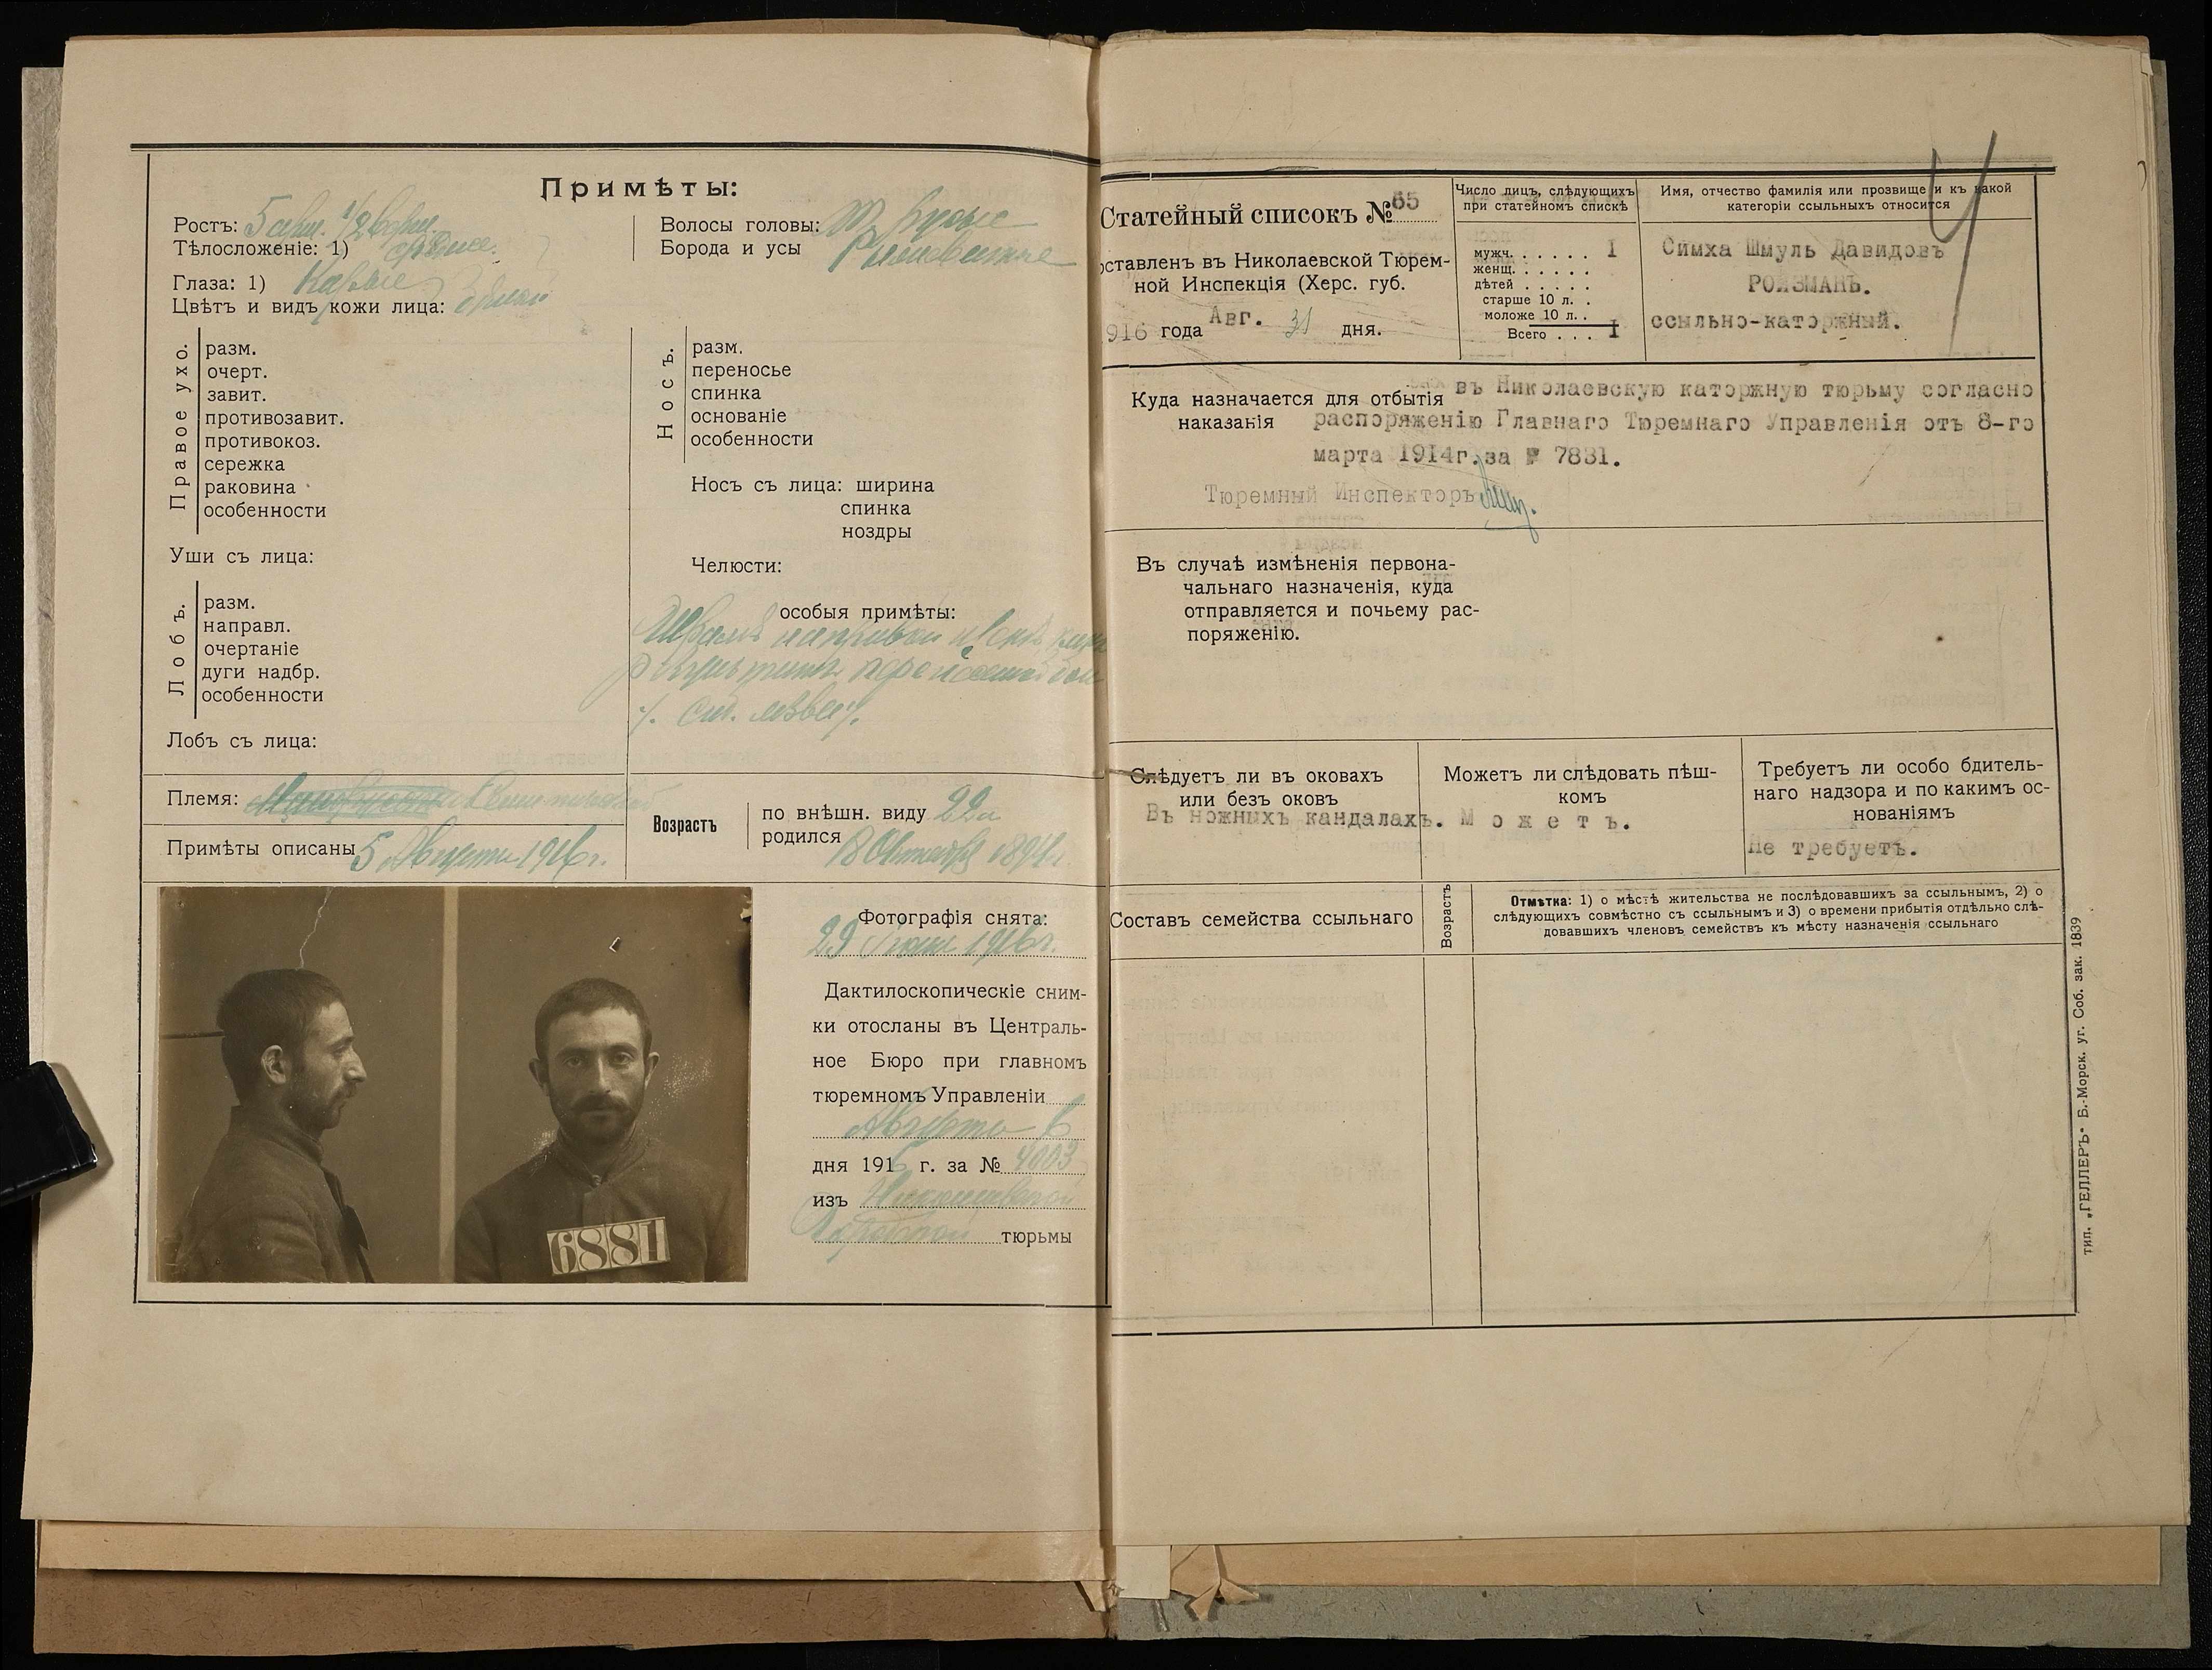 Примѣты:
Ростъ: 5 арш. 1/2 верш.
Тѣлосложеніе: 1) среднее.
Глаза: 1) Каріе
Цвѣтъ и видъ кожи лица: бѣлый
Волосы головы:
Борода и усы
Правое ухо.
разм.
очерт.
завит.
противозавит.
противокоз.
сережка
раковина
особенности
Уши съ лица:
Лобъ.
разм.
направл.
очертаніе
дуги надбр.
особенности
Лобъ съ лица:
Носъ.
разм.
переносье
спинка
основаніе
особенности
Носъ съ лица: ширина
спинка
ноздры
Челюсти:
особыя примѣты:
Племя:
Примѣты описаны 5 Августа 1916 г.
Возрастъ
по внѣшн. виду 22 л
родился 18 Октября 1894 г
Фотографія снята:
29 1916 г.
Дактилоскопическіе сним-
ки отосланы въ Централь-
ное Бюро при главномъ
тюремномъ Управленіи
Августа 6
дня 1916 г. за № 4003
изъ Николаевской
Каторжной тюрьмы
6881
Статейный списокъ № 65
оставленъ въ Николаевской Тюрем-
ной Инспекція (Херс. губ.
916 года Авг. 31 дня.
Число лицъ, слѣдующихъ
при статейномъ спискѣ
мужч. . . . . . I
женщ. . . . . .
дѣтей . . . . .
старше 10 л. .
моложе 10 л. .
Всего . . . I
Имя, отчество фамилія или прозвище и къ какой
категоріи ссыльныхъ относится
Симха Шмуль Давидовъ
РОЙЗМАНЪ.
ссыльно-каторжный.
Куда назначается для отбытія въ Николаевскую каторжную тюрьму согласно
наказанія распоряженію Главнаго Тюремнаго Управленія отъ 8-го
марта 1914г. за № 7831.
Тюремный Инспекторъ
Въ случаѣ измѣненія первона-
чальнаго назначенія, куда
отправляется и почьему рас-
поряженію.
Слѣдуетъ ли въ оковахъ
или безъ оковъ
Въ ножныхъ кандалахъ.
Можетъ ли слѣдовать пѣш-
комъ
Можетъ.
Требуетъ ли особо бдитель-
наго надзора и по какимъ ос-
нованіямъ
Не требуетъ.
Составъ семейства ссыльнаго
Возрастъ
Отмѣтка: 1) о мѣстѣ жительства не послѣдовавшихъ за ссыльнымъ, 2) о
слѣдующихъ совмѣстно съ ссыльнымъ и 3) о времени прибытія отдѣльно слѣ-
довавшихъ членовъ семействъ къ мѣсту назначенія ссыльнаго
тип. „ГЕЛЛЕРЪ" Б.-Морск. уг. Соб. зак. 1839